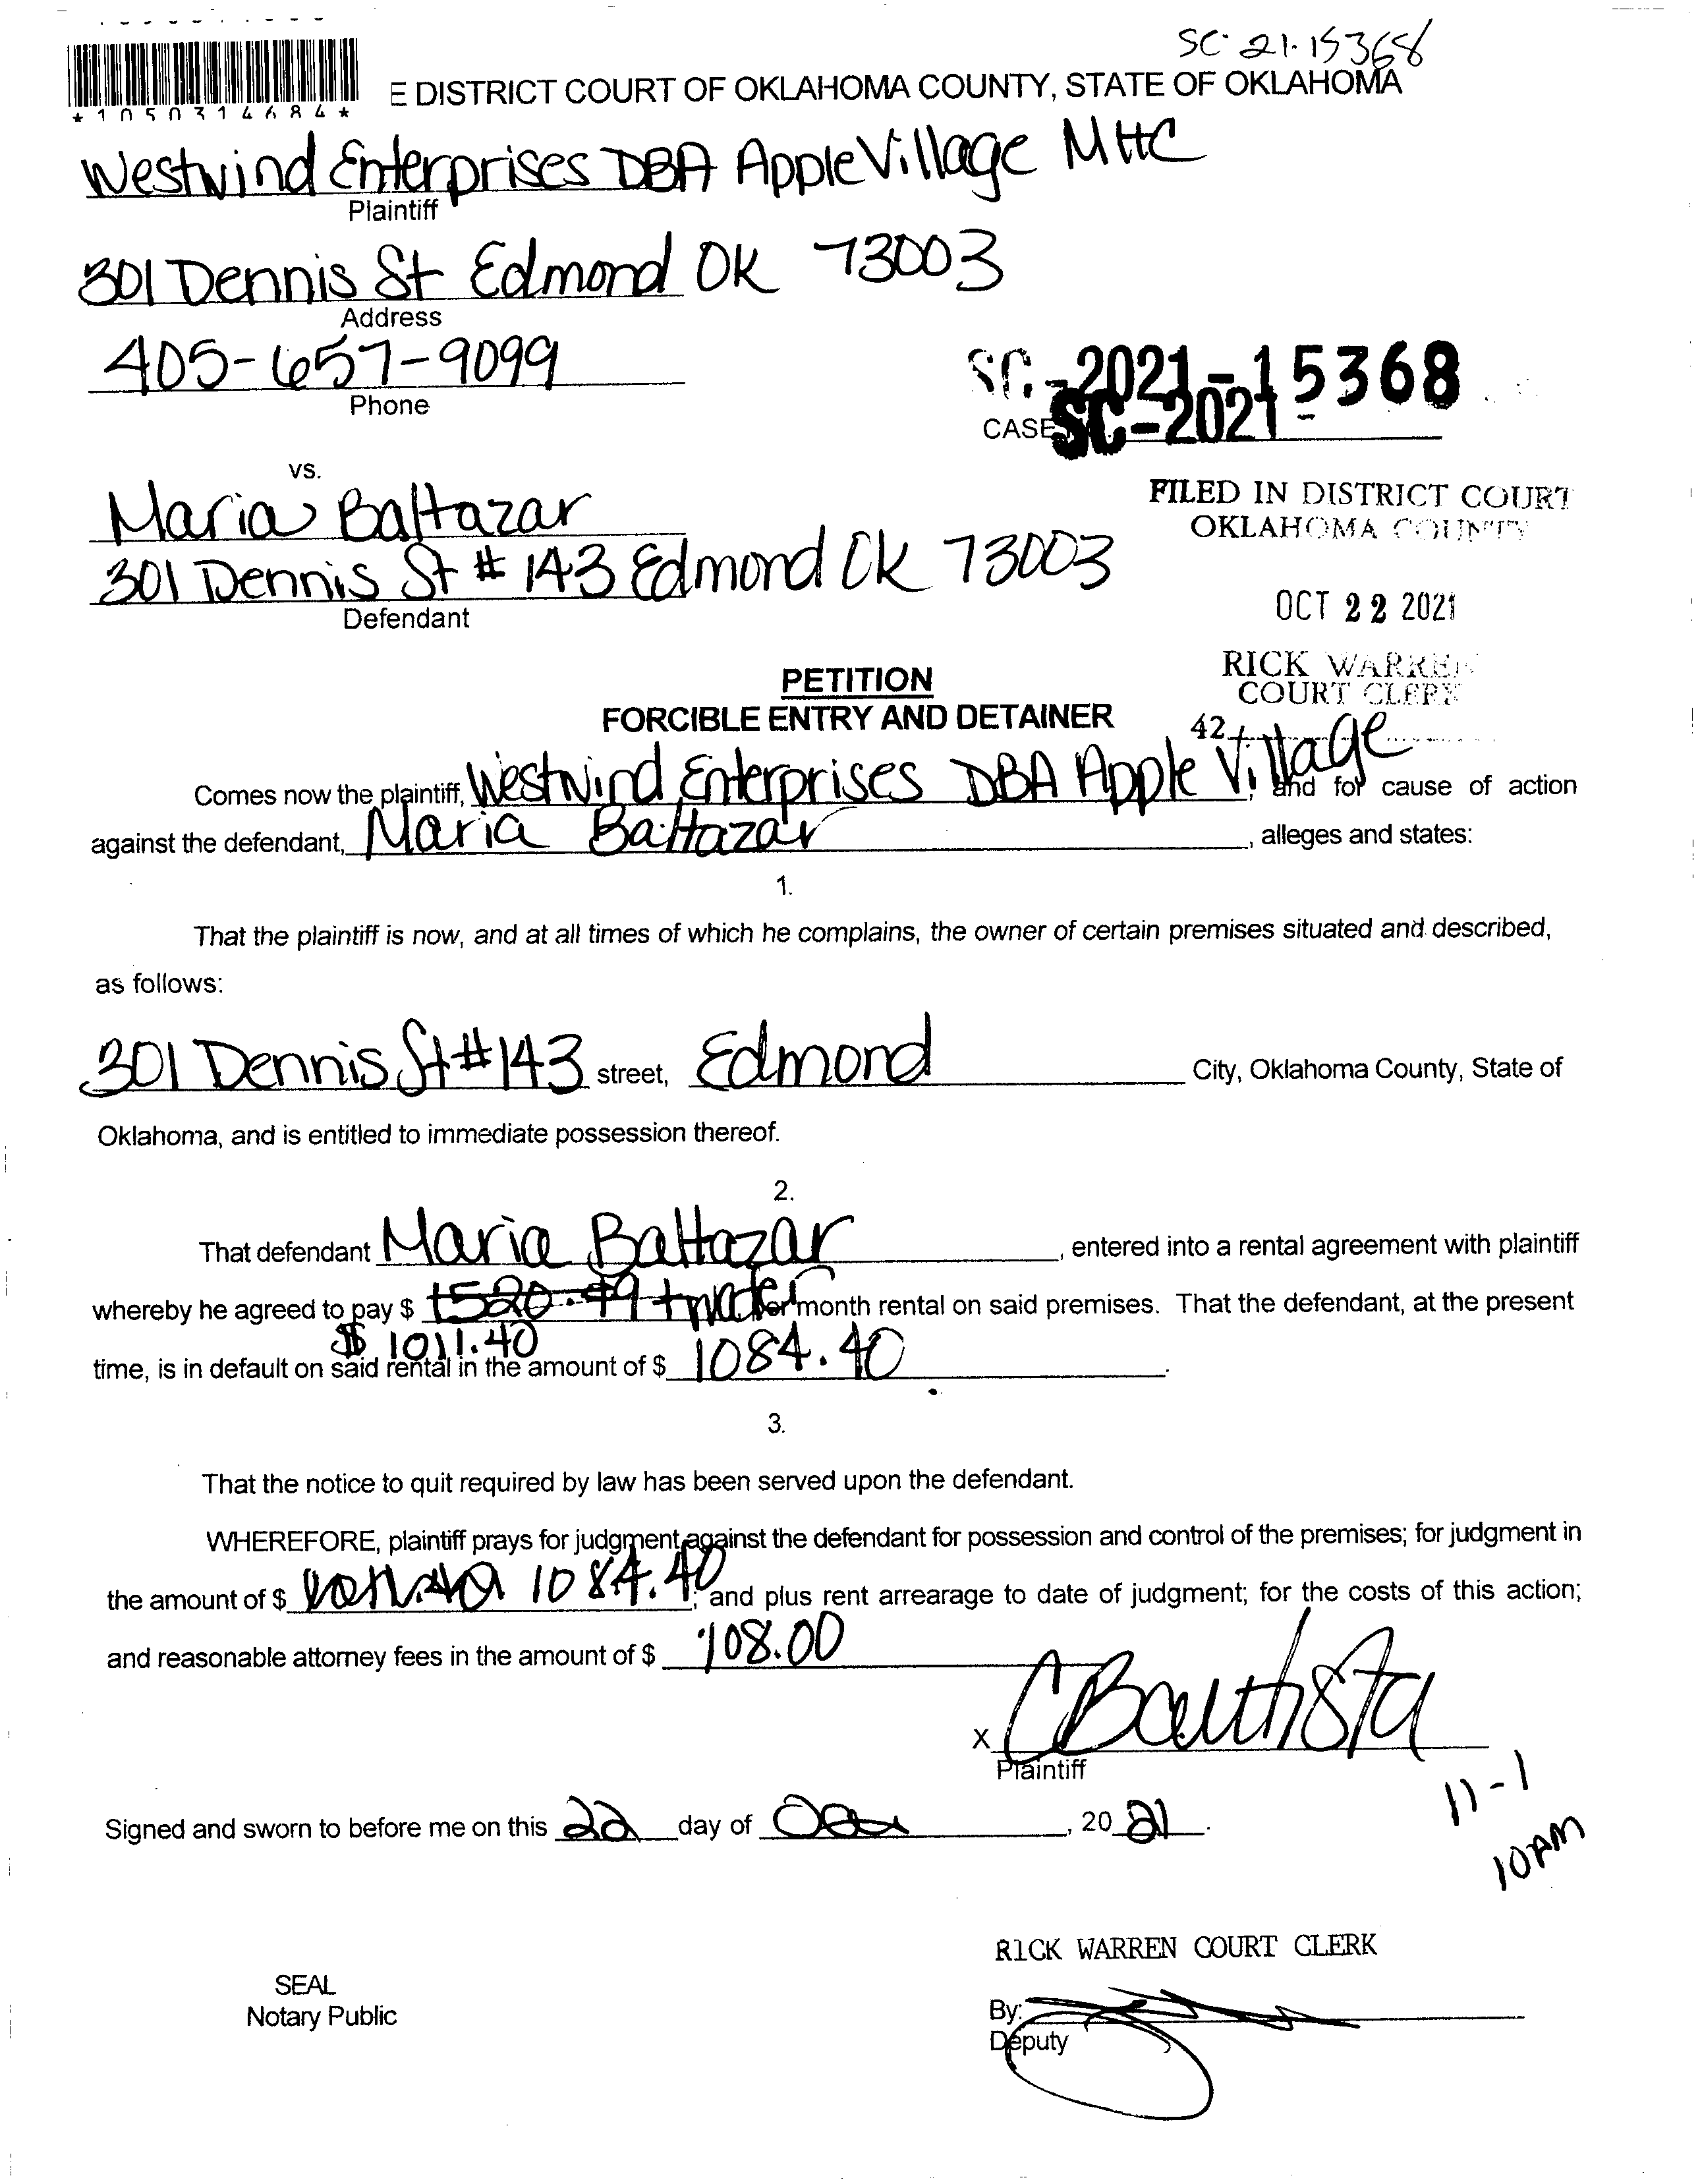 SC-21-15368
*1050314684*
E DISTRICT COURT OF OKLAHOMA COUNTY, STATE OF OKLAHOMA
Westwind Enterprises DBA Apple Village MHC
Plaintiff
301 Dennis St Edmond OK 73003
Address
405-657-9099
Phone
SC-2021-15368
CASE SC-2021-
vs.
Maria Baltazar
301 Dennis St # 143 Edmond Ok 73003
Defendant
FILED IN DISTRICT COURT
OKLAHOMA COUNTY
OCT 22 2021
RICK WARREN
COURT CLERK
42
PETITION
FORCIBLE ENTRY AND DETAINER
Comes now the plaintiff, Westwind Enterprises DBA Apple Village, and for cause of action
against the defendant, Maria Baltazar, alleges and states:
1.
That the plaintiff is now, and at all times of which he complains, the owner of certain premises situated and described,
as follows:
301 Dennis St #143 street, Edmond City, Oklahoma County, State of
Oklahoma, and is entitled to immediate possession thereof.
2.
That defendant Maria Baltazar, entered into a rental agreement with plaintiff
whereby he agreed to pay $ 1520.49 + water per month rental on said premises. That the defendant, at the present
$ 1011.40
time, is in default on said rental in the amount of $ 1084.40.
3.
That the notice to quit required by law has been served upon the defendant.
WHEREFORE, plaintiff prays for judgment against the defendant for possession and control of the premises; for judgment in
the amount of $ 1084.40; and plus rent arrearage to date of judgment; for the costs of this action;
and reasonable attorney fees in the amount of $ 108.00
x CBautista
Plaintiff
11-1
10AM
Signed and sworn to before me on this 22 day of Oct, 2021.
RICK WARREN COURT CLERK
SEAL
Notary Public
By:
Deputy